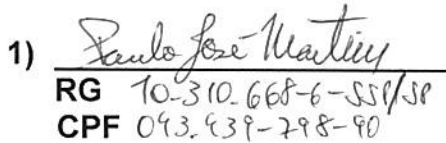 1) Paulo José Martins
RG 10-310.668-6-SSP/SP
CPF 043.939-798-90